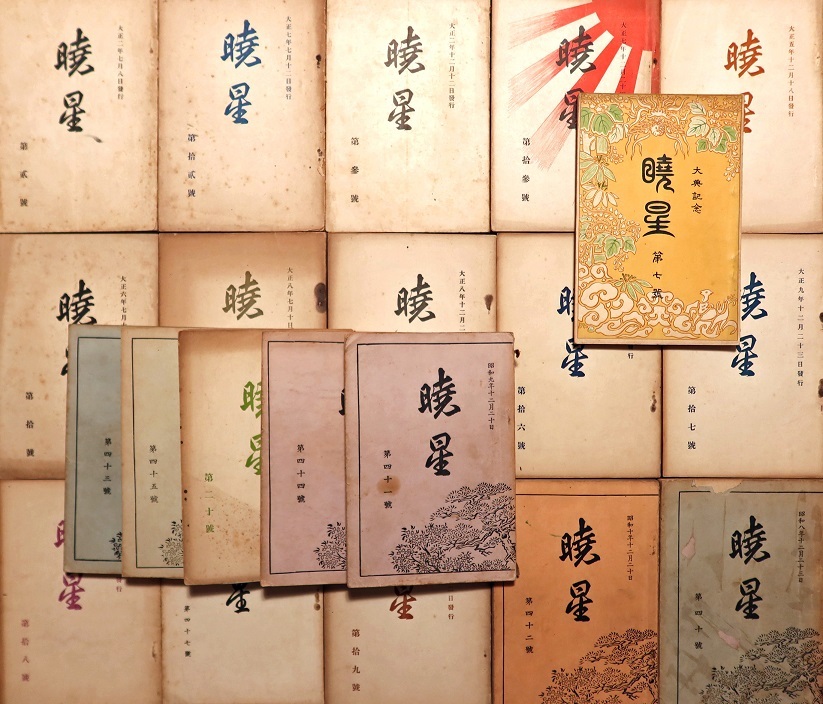 大正二年七月八日發行
曉星
第貳號
大正七年七月十二日發行
曉星
第拾貳號
大正二年十二月十二日發行
曉星
第參號
大正七年十二月
曉星
第拾參號
大正五年十二月十八日發行
曉星
大典記念
曉星
第七號
大正六年七月
曉星
第拾號
大正八年七月十日
曉星
大正八年十二月二
曉星
曉星
第拾六號
大正九年十二月二十三日發行
曉星
第拾七號
第四十三號
第四十五號
曉星
第二十號
第四十四號
昭和九年十二月二十日
曉星
第四十一號
曉星
第拾八號
星
第四十七號
日發行
星
第拾九號
昭和十年十二月二十日
曉星
第四十二號
昭和八年十二月二十三日
曉星
第四十號